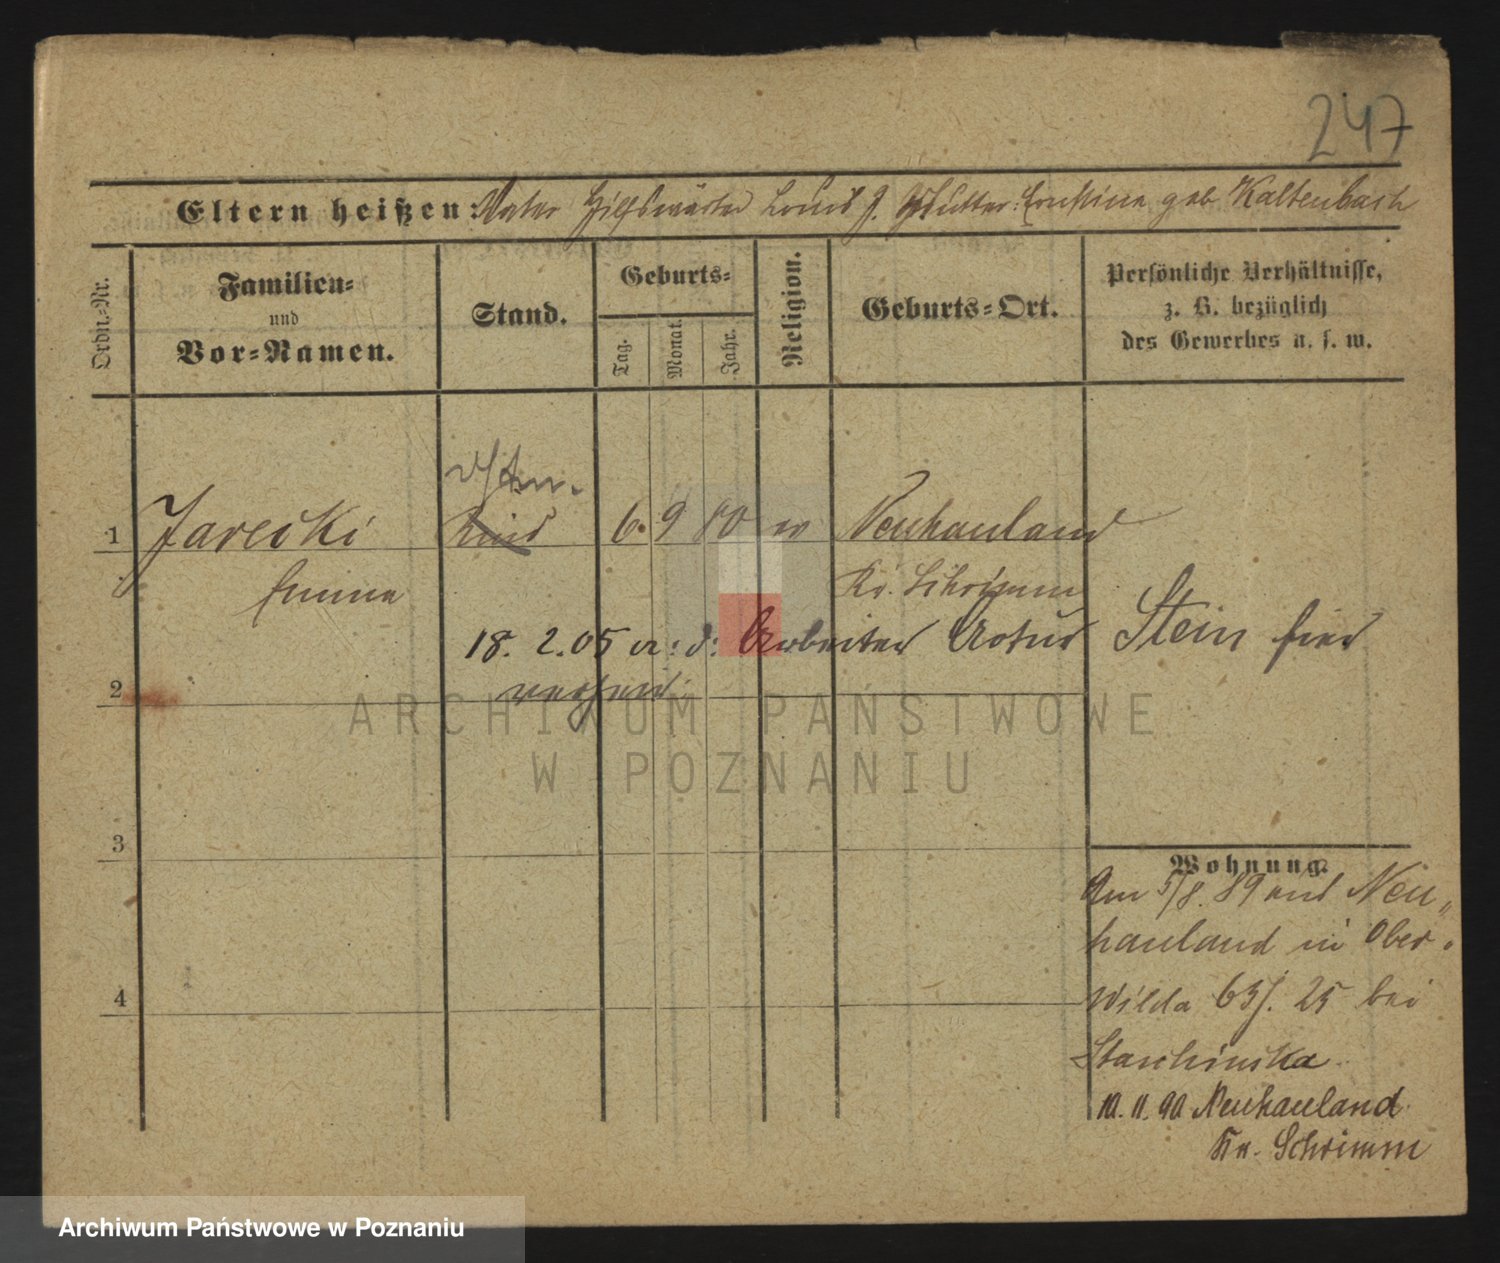 247
Eltern heißen: Vater Hilfswärter Louis J. Mutter: Ernstine geb Kaltenbach
Ordn.-Nr.
Familien-
und
Vor-Namen.
Stand.
Geburts-
Tag.
Monat.
Jahr.
Religion.
Geburts-Ort.
Persönliche Verhältnisse,
z. B. bezüglich
des Gewerbes u. s. w.
1 Jarecki Kind 6. 9 80 Neuhauland
Emma Kr. Schrimm
18. 2. 05 a: d: Arbeiter Artur Stein hier
verh
2
3
4
Wohnung.
Am 5/8. 89 aus Neu„
hauland in Ober-
Wilda 65/. 25 bei
Staschinska
10. 11. 90 Neuhauland
Kr. Schrimm
ARCHIWUM PAŃSTWOWE
W POZNANIU
Archiwum Państwowe w Poznaniu